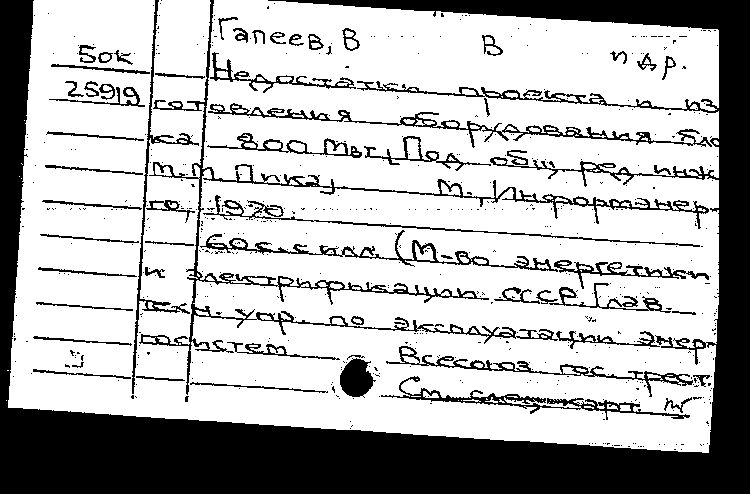 Гапеев, В В и др.
Бок Недостатки проекта и из
25919 готовления оборудования бло
ка 800 Мвт, Под общ ред инж
М.М Пика, М., Информэнер-
го, 1970.
60 с. с илл. (М-во энергетики
и электрификации СССР. Глав.
техн. упр. по эксплуатации энер-
госистем. Всесоюз гос. трест.
См. след. карт.